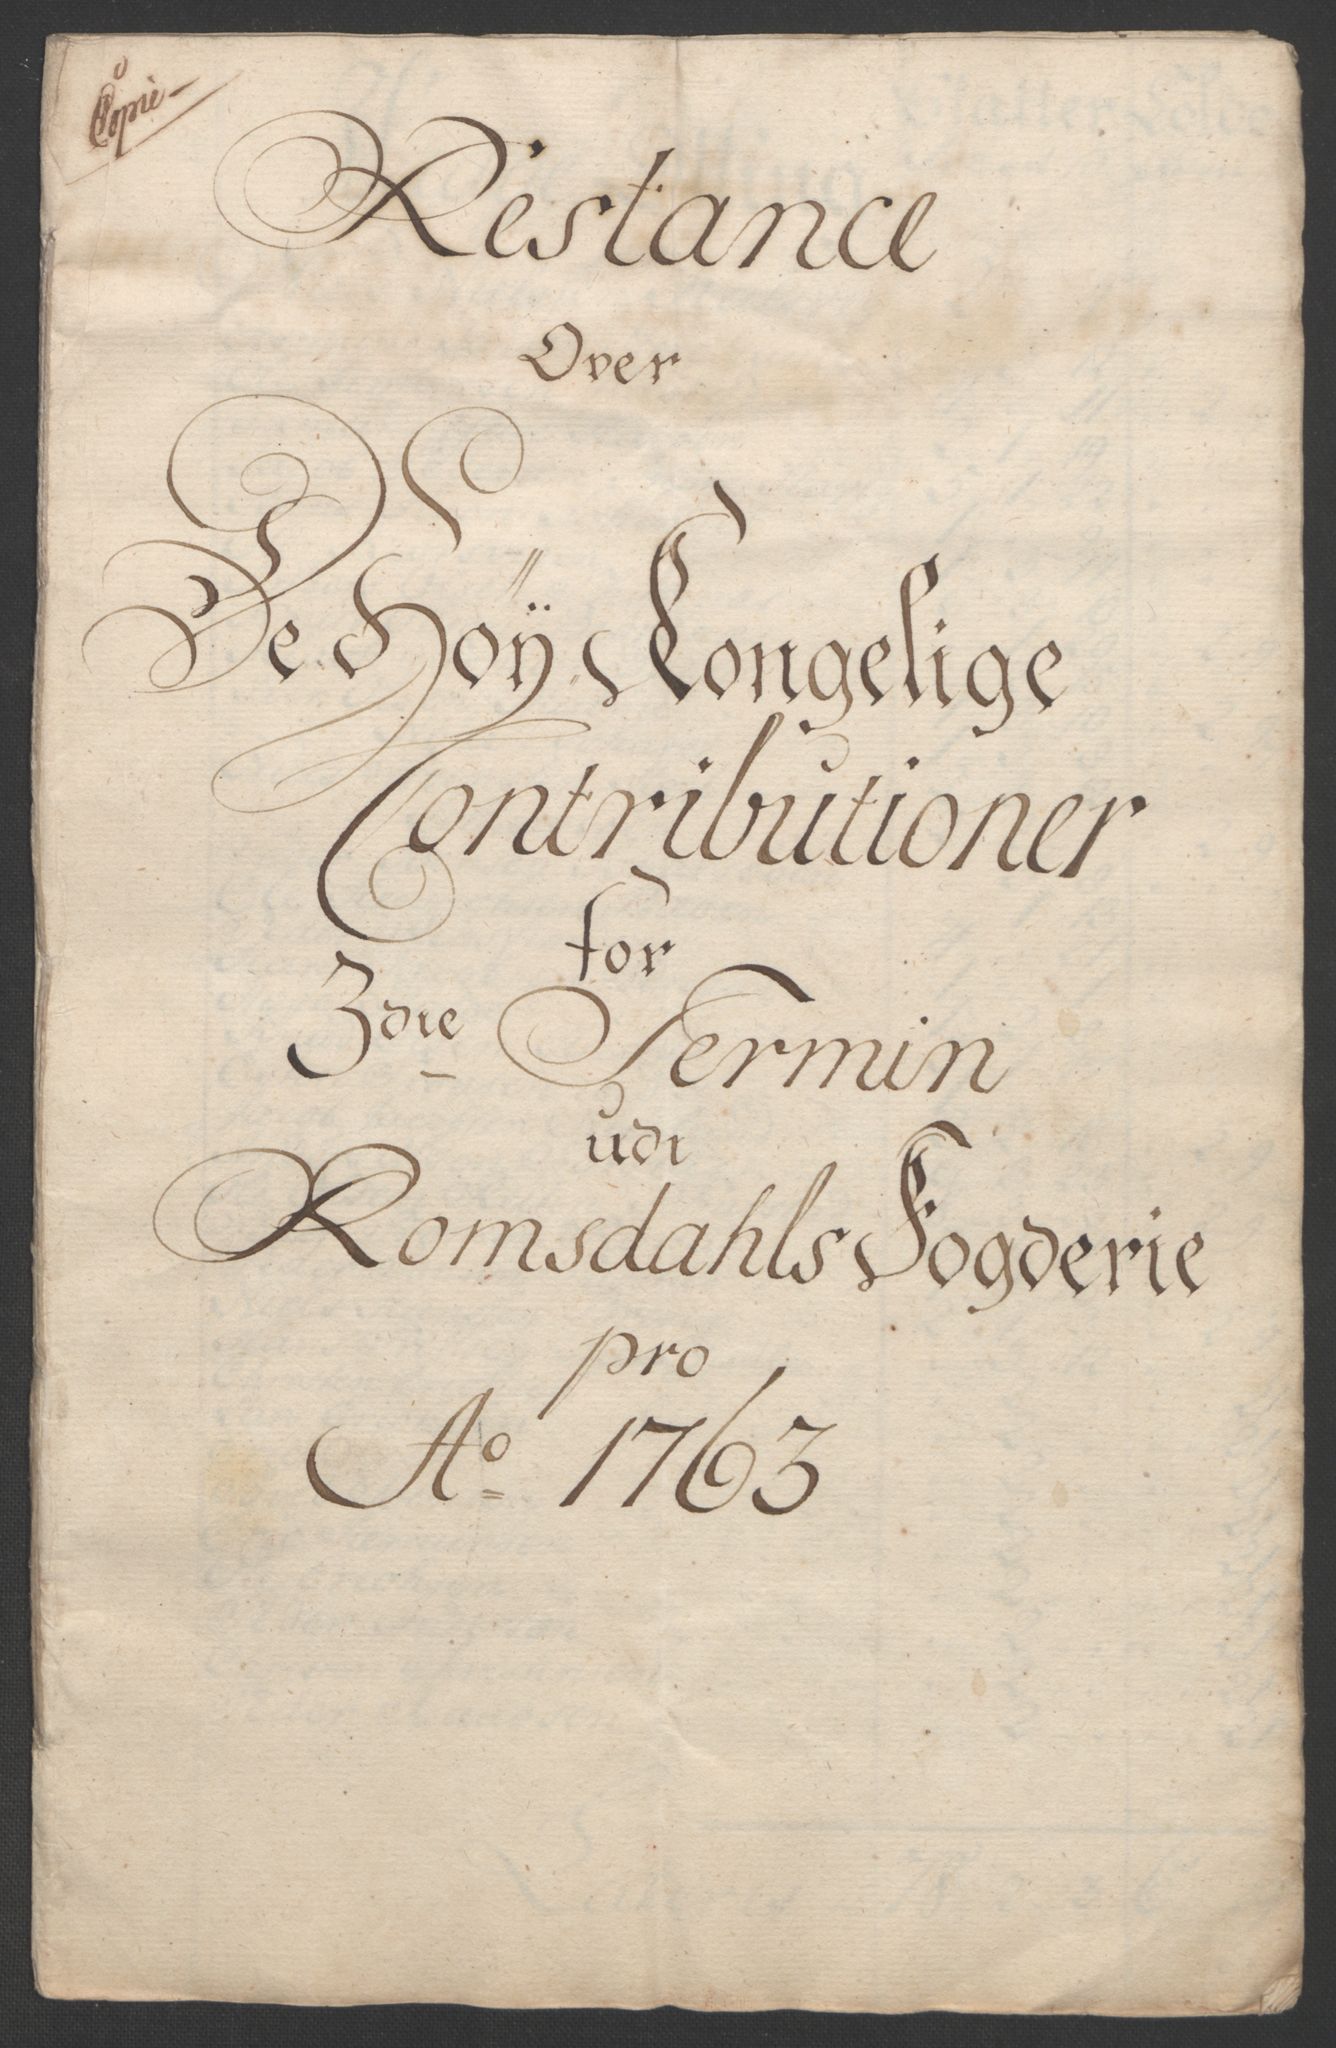 Copie
Restance
Over
De Höÿ Kongelige
Contributioner
for
3die Termin
udi
Romsdahls Fogderie
pro
Ao 1763